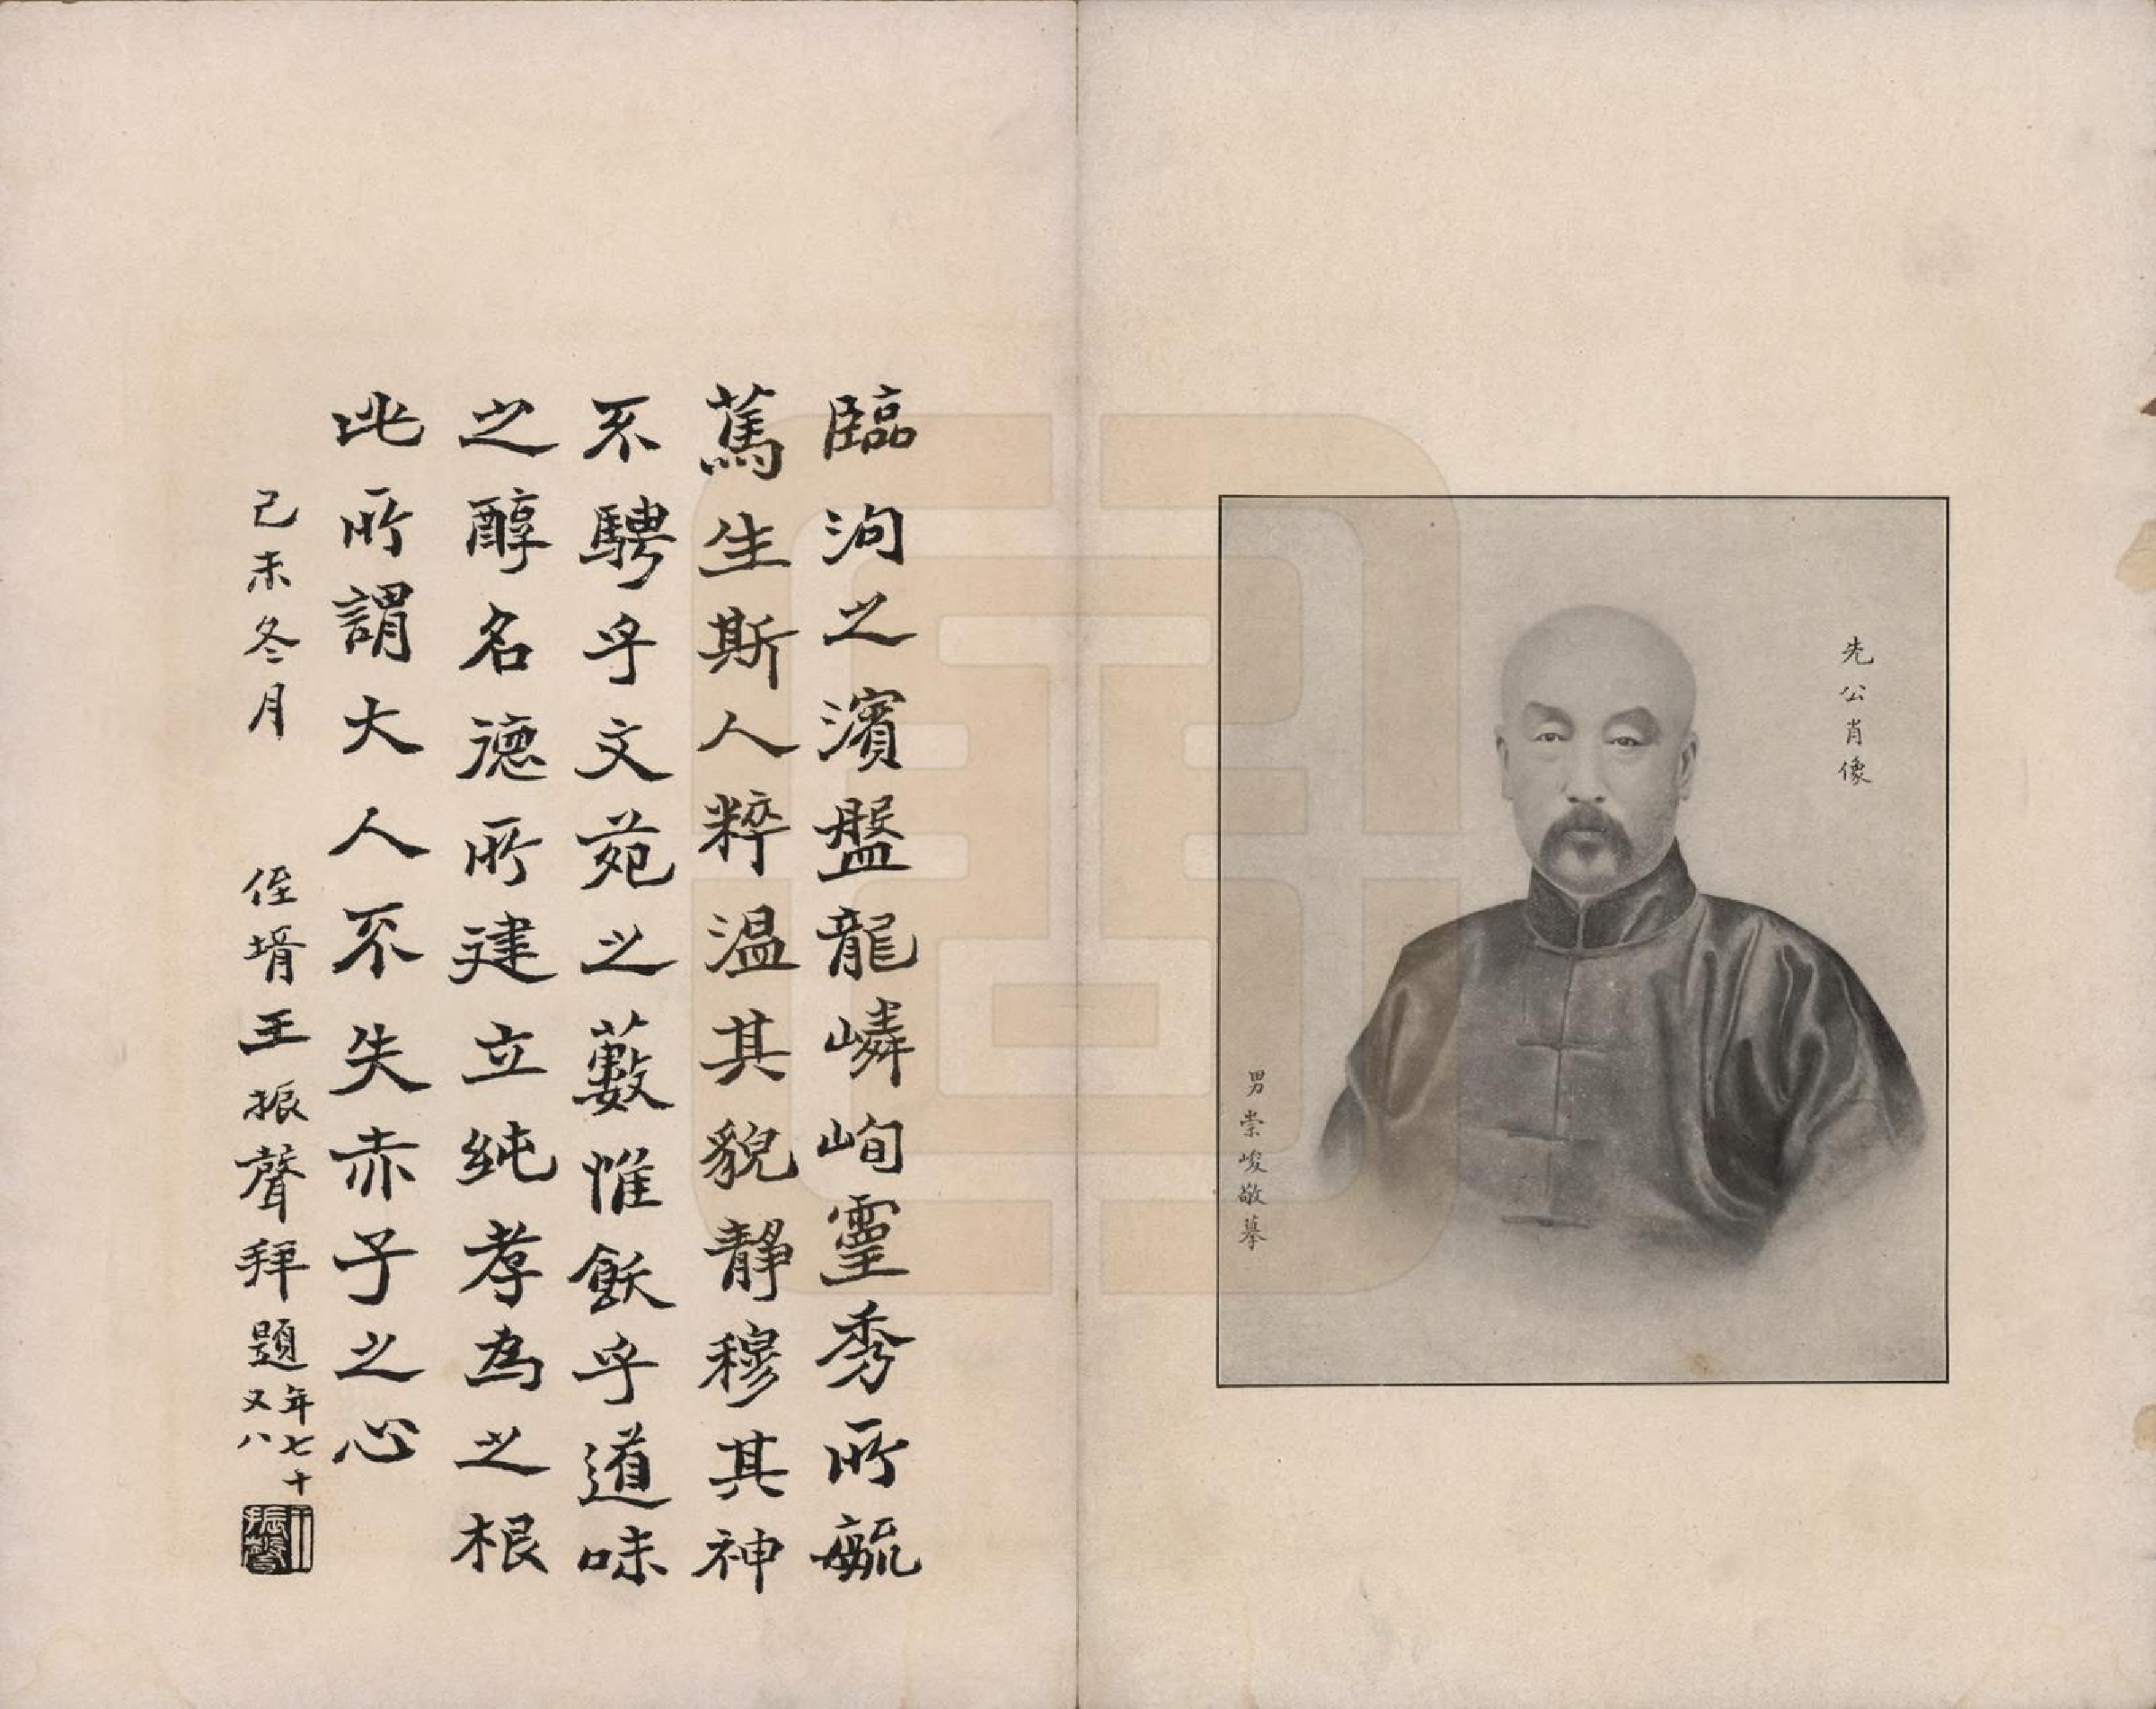 先公肖像
男崇峻敬摹
臨泃之濱盤龍嶙峋靈秀所毓
篤生斯人粹温其貌靜穆其神
不騁乎文苑之藪惟飫乎道味
之醇名德所建立純孝為之根
此所謂大人不失赤子之心
己未冬月 侄壻王振聲拜題年七十又八
王振聲